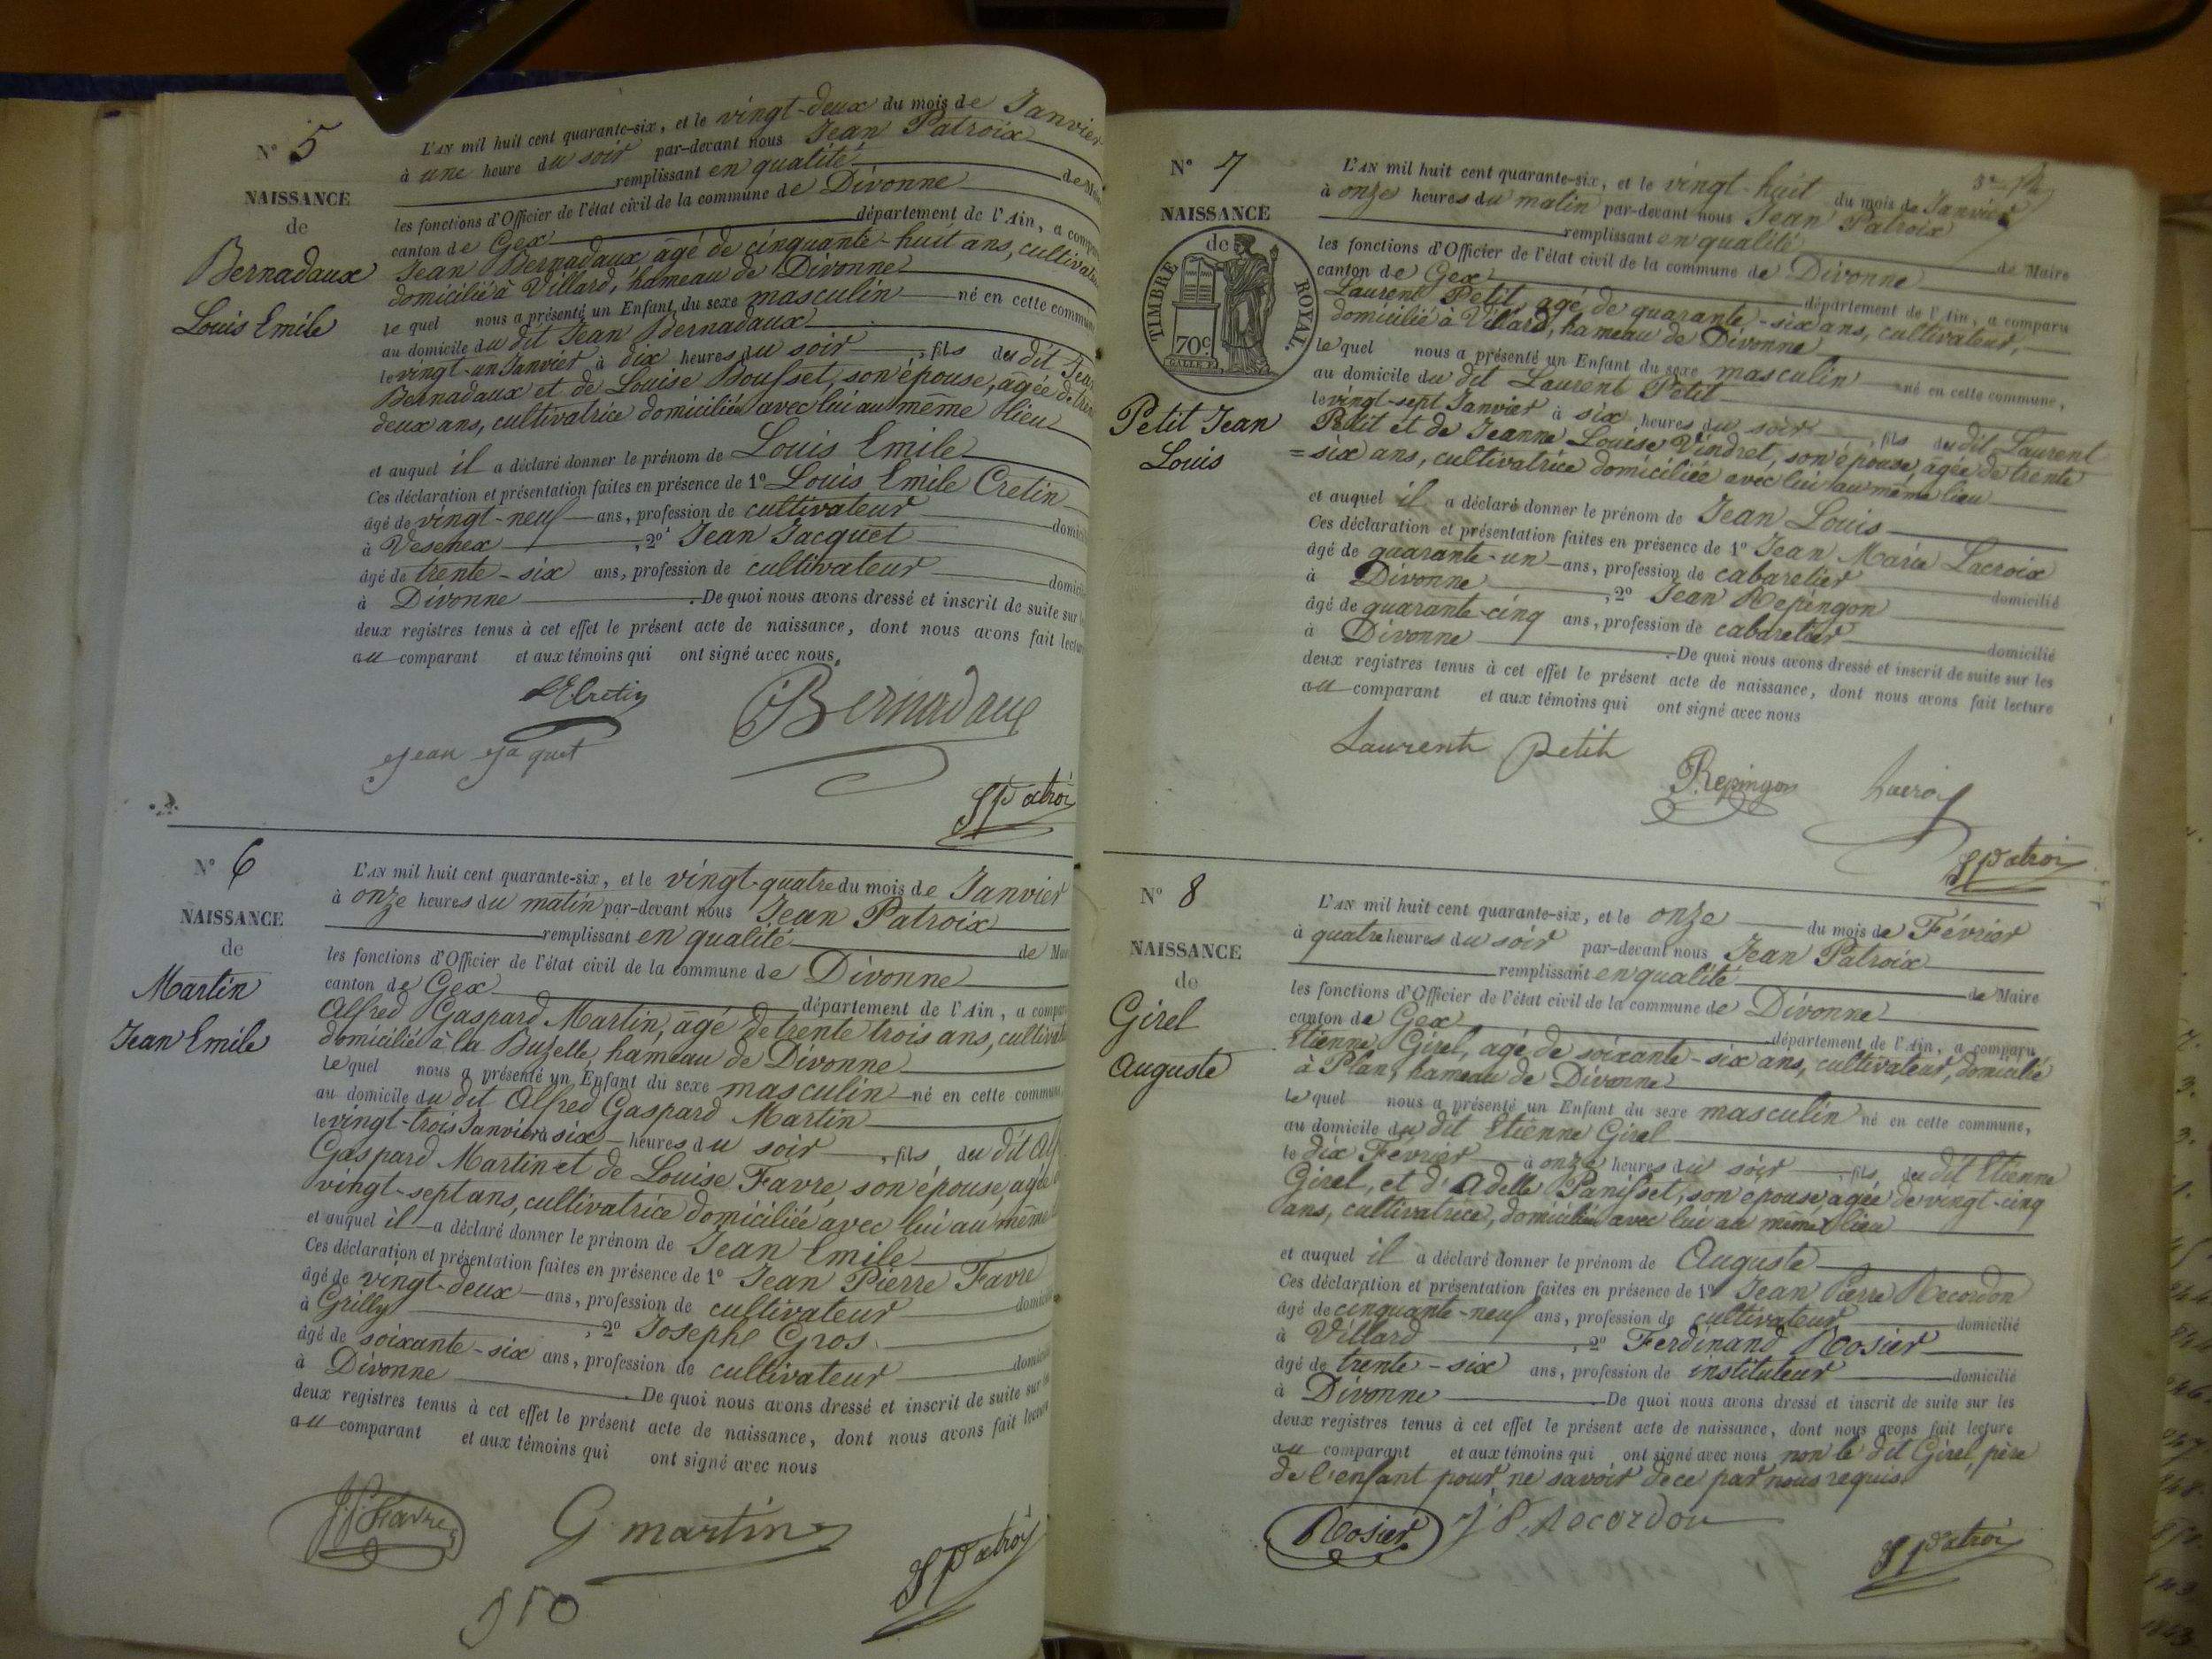 N° 5
NAISSANCE
de
Bernadaux
Louis Emile
L'AN mil huit cent quarante-six, et le vingt-deux du mois de Janvier
à une heure du soir par-devant nous Jean Patroix
remplissant en qualité de Maire
les fonctions d'Officier de l'état civil de la commune de Divonne
canton de Gex département de l'Ain, a comparu
Jean Bernadaux âgé de cinquante-huit ans, cultivateur
domicilié à Villard, hameau de Divonne
le quel nous a présenté un Enfant du sexe masculin né en cette commune
au domicile du dit Jean Bernadaux
le vingt-un Janvier à dix heures du soir, fils du dit Jean
Bernadaux et de Louise Bousset, son épouse, âgée de trente
deux ans, cultivatrice domiciliée avec lui au même lieu
et auquel il a déclaré donner le prénom de Louis Emile
Ces déclaration et présentation faites en présence de 1° Louis Emile Cretin
âgé de vingt-neuf ans, profession de cultivateur domici
à Vesenex, 2° Jean Jacquet
âgé de trente-six ans, profession de cultivateur domici
à Divonne. De quoi nous avons dressé et inscrit de suite sur l
deux registres tenus à cet effet le présent acte de naissance, dont nous avons fait lectu
au comparant et aux témoins qui ont signé avec nous.
LE Cretin
Bernadaux
Jean Jaquet
JPatroix
N° 6
NAISSANCE
de
Martin
Jean Emile
L'AN mil huit cent quarante-six, et le vingt-quatre du mois de Janvier
à onze heures du matin par-devant nous Jean Patroix
remplissant en qualité de Mai
les fonctions d'Officier de l'état civil de la commune de Divonne
canton de Gex département de l'Ain, a compar
Alfred Gaspard Martin, âgé de trente trois ans, cultivat
domicilié à la Buzelle, hameau de Divonne
le quel nous a présenté un Enfant du sexe masculin né en cette commune
au domicile du dit Alfred Gaspard Martin
le vingt-trois Janvier à six heures du soir, fils du dit Alf
Gaspard Martin et de Louise Favre, son épouse, agée d
vingt-sept ans, cultivatrice domiciliée avec lui au même l
et auquel il a déclaré donner le prénom de Jean Emile
Ces déclaration et présentation faites en présence de 1° Jean Pierre Favre
âgé de vingt-deux ans, profession de cultivateur domici
à Grilly, 2° Josephe Gros
âgé de soixante-six ans, profession de cultivateur domici
à Divonne. De quoi nous avons dressé et inscrit de suite sur les
deux registres tenus à cet effet le présent acte de naissance, dont nous avons fait lecture
au comparant et aux témoins qui ont signé avec nous
J.P. Favre
G. martin
JPatroix
N° 7
NAISSANCE
de
TIMBRE ROYAL.
70c
Petit Jean
Louis
L'AN mil huit cent quarante-six, et le vingt-huit du mois de Janvier
à onze heures du matin par-devant nous Jean Patroix
remplissant en qualité de Maire
les fonctions d'Officier de l'état civil de la commune de Divonne
canton de Gex département de l'Ain, a comparu
Laurent Petit, agé de quarante-six ans, cultivateur,
domicilié à Villard, hameau de Divonne
le quel nous a présenté un Enfant du sexe masculin né en cette commune,
au domicile du dit Laurent Petit
le vingt-sept Janvier à six heures du soir, fils du dit Laurent
Petit et de Jeanne Louise Vindret, son épouse, agée de trente
=six ans, cultivatrice domiciliée avec lui au même lieu
et auquel il a déclaré donner le prénom de Jean Louis
Ces déclaration et présentation faites en présence de 1° Jean Marie Lacroix
âgé de quarante-un ans, profession de cabaretier domicilié
à Divonne, 2° Jean Repingon
âgé de quarante-cinq ans, profession de cabaretier domicilié
à Divonne. De quoi nous avons dressé et inscrit de suite sur les
deux registres tenus à cet effet le présent acte de naissance, dont nous avons fait lecture
au comparant et aux témoins qui ont signé avec nous
Laurent petit
Repingon
Lacroix
JPatroix
N° 8
NAISSANCE
de
Girel
Auguste
L'AN mil huit cent quarante-six, et le onze du mois de Février
à quatre heures du soir par-devant nous Jean Patroix
remplissant en qualité de Maire
les fonctions d'Officier de l'état civil de la commune de Divonne
canton de Gex département de l'Ain, a comparu
Etienne Girel, agé de soixante-six ans, cultivateur, domicilié
à Plan, hameau de Divonne
le quel nous a présenté un Enfant du sexe masculin né en cette commune,
au domicile du dit Etienne Girel
le dix Février à onze heures du soir, fils du dit Etienne
Girel, et d'Adelle Panisset, son épouse, agée de vingt-cinq
ans, cultivatrice, domiciliée avec lui au même lieu
et auquel il a déclaré donner le prénom de Auguste
Ces déclaration et présentation faites en présence de 1° Jean Pierre Recordon
âgé de cinquante-neuf ans, profession de cultivateur domicilié
à Villard, 2° Ferdinand Rosier
âgé de trente-six ans, profession de instituteur domicilié
à Divonne. De quoi nous avons dressé et inscrit de suite sur les
deux registres tenus à cet effet le présent acte de naissance, dont nous avons fait lecture
au comparant et aux témoins qui ont signé avec nous non le dit Girel, père
de l'enfant pour ne savoir de ce par nous requis.
Rosier
J P Recordon
JPatroix